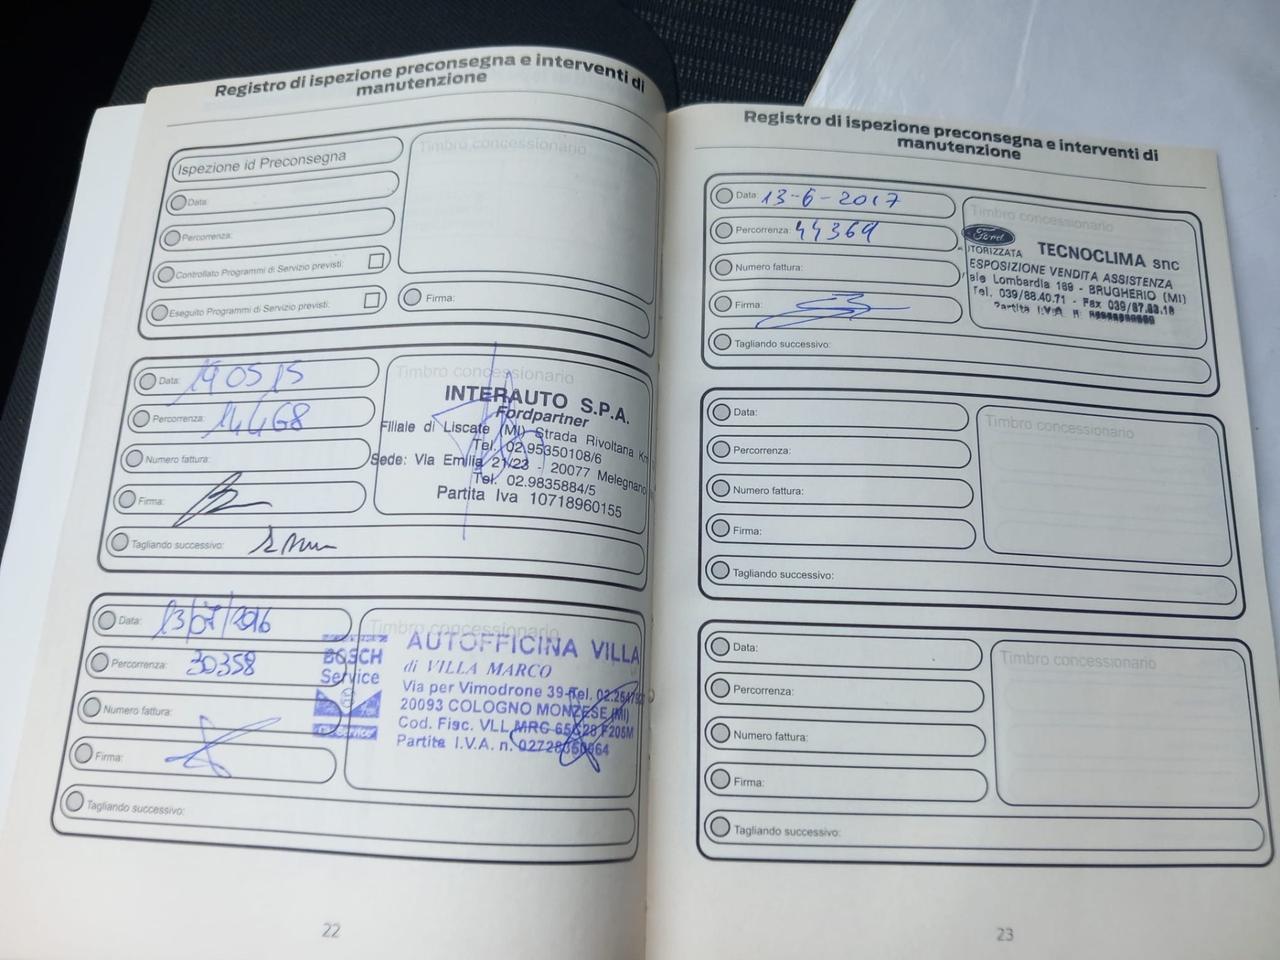 Registro di ispezione preconsegna e interventi di
manutenzione
Ispezione id Preconsegna
Timbro concessionario
Data:
Percorrenza:
Controllato Programmi di Servizio previsti:
Eseguito Programmi di Servizio previsti:
Firma:
Data: 19 05 15
Percorrenza: 14468
Numero fattura:
Firma:
Tagliando successivo:
Timbro concessionario
INTERAUTO S.P.A.
Fordpartner
Filiale di Liscate (MI) Strada Rivoltana Km
Tel. 02.95350108/6
Sede: Via Emilia 21/23 - 20077 Melegnano
Tel. 02.9835884/5
Partita Iva 10718960155
Data: 13/07/2016
Percorrenza: 30358
Numero fattura:
Firma:
Tagliando successivo:
Timbro concessionario
BOSCH
Service
AUTOFFICINA VILLA
di VILLA MARCO
Via per Vimodrone 39-Tel. 02.2547
20093 COLOGNO MONZESE (MI)
Cod. Fisc. VLL MRC 65C28 F205M
Partita I.V.A. n.
22
Registro di ispezione preconsegna e interventi di
manutenzione
Data: 13-6-2017
Percorrenza: 44369
Numero fattura:
Firma:
Tagliando successivo:
Timbro concessionario
Ford
TORIZZATA TECNOCLIMA snc
ESPOSIZIONE VENDITA ASSISTENZA
ale Lombardia 189 - BRUGHERIO (MI)
Tel. 039/88.40.71 - Fax 039/87.83.18
Partita I.V.A. N
Data:
Percorrenza:
Numero fattura:
Firma:
Tagliando successivo:
Timbro concessionario
Data:
Percorrenza:
Numero fattura:
Firma:
Tagliando successivo:
Timbro concessionario
23